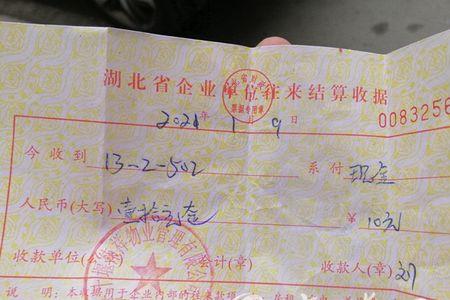 湖北省企业单位往来结算收据
0083256
2021年1月9日
今收到 13-2-502 系付 现金
人民币(大写) 壹拾元整 ¥ 10元
收款单位(公 会计(章) 收款人(章) 刘
说明:本收据用于企业内部的往来款项
物业管理有限
票据专用章